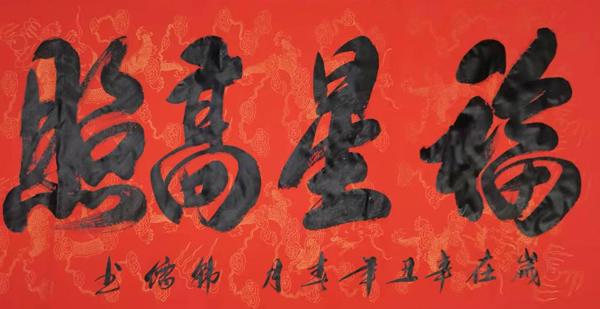 福星高照
歲在辛丑年春月錦儒書